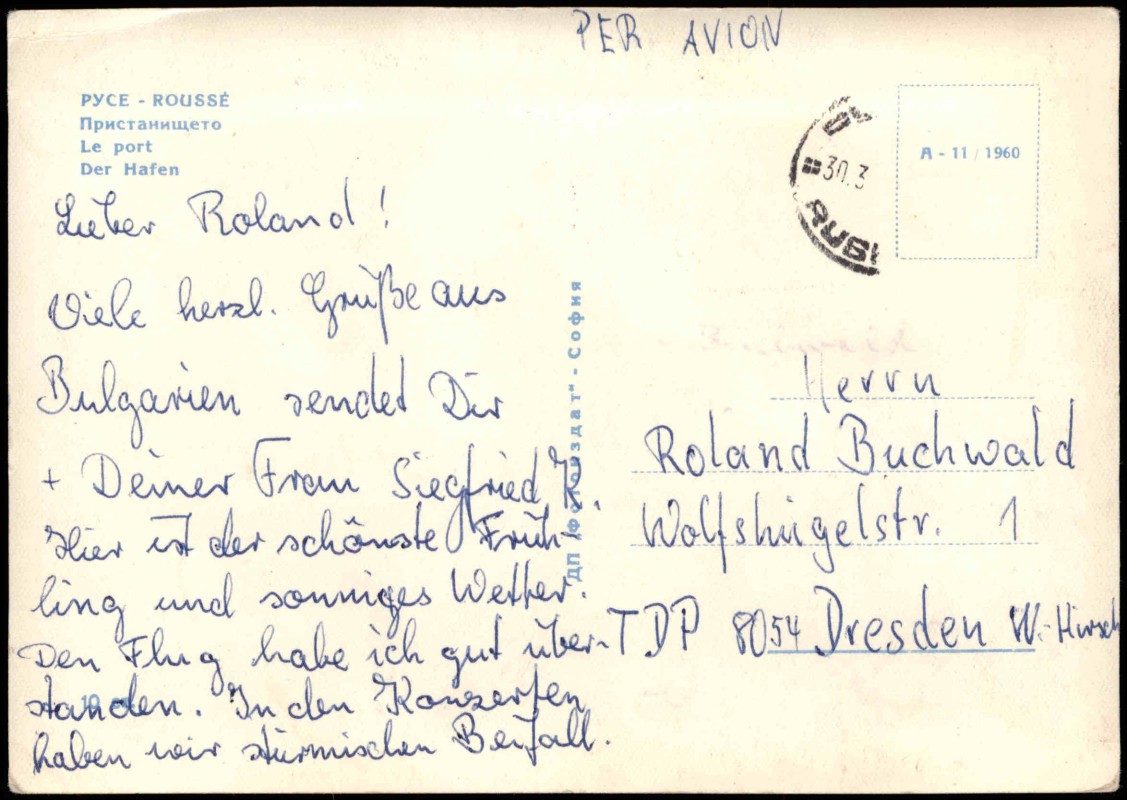 PER AVION
РУСЕ - ROUSSÉ
Пристанището
Le port
Der Hafen
A - 11 / 1960
30.3
Lieber Roland!
Viele herzl. Grüße aus
Bulgarien sendet Dir
+ Deiner Frau Siegfried
Hier ist der schönste Früh-
ling und sonniges Wetter.
Den Flug habe ich gut über-
standen. In den Konzerten
haben wir stürmischen Beifall.
ДП "Фотоиздат" - София
Herrn
Roland Buchwald
Wolfshügelstr. 1
TDP 8054 Dresden W.-Hirsch